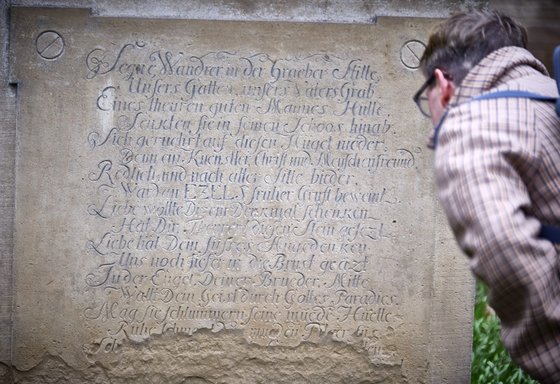 Segne Wandrer in der Graeber Stille
Unsers Gatten, unsers Vaters Grab
Eines theuren guten Mannes Hülle
Senkten sie in seinen Schoos hinab
Sich geruhrt auf diesen Hügel nieder
Dem ein Kuenstler, Christ und Menschenfreund
Redlich und nach alter Sitte bieder
War den EZELS früher Gruft beweint
Liebe wollte Dir ein Denkmal schenken
Hat Dir, Theurer! diesen Stein gesezt
Liebe hat Dein süsses Angedenken
Uns noch tiefer in die Brust geäzt
In der Engel Deiner Brüder, Mitte
Wallt Dein Geist durch Gottes Paradies,
Mag sie schlummern seine müde Huelle
Ruhe